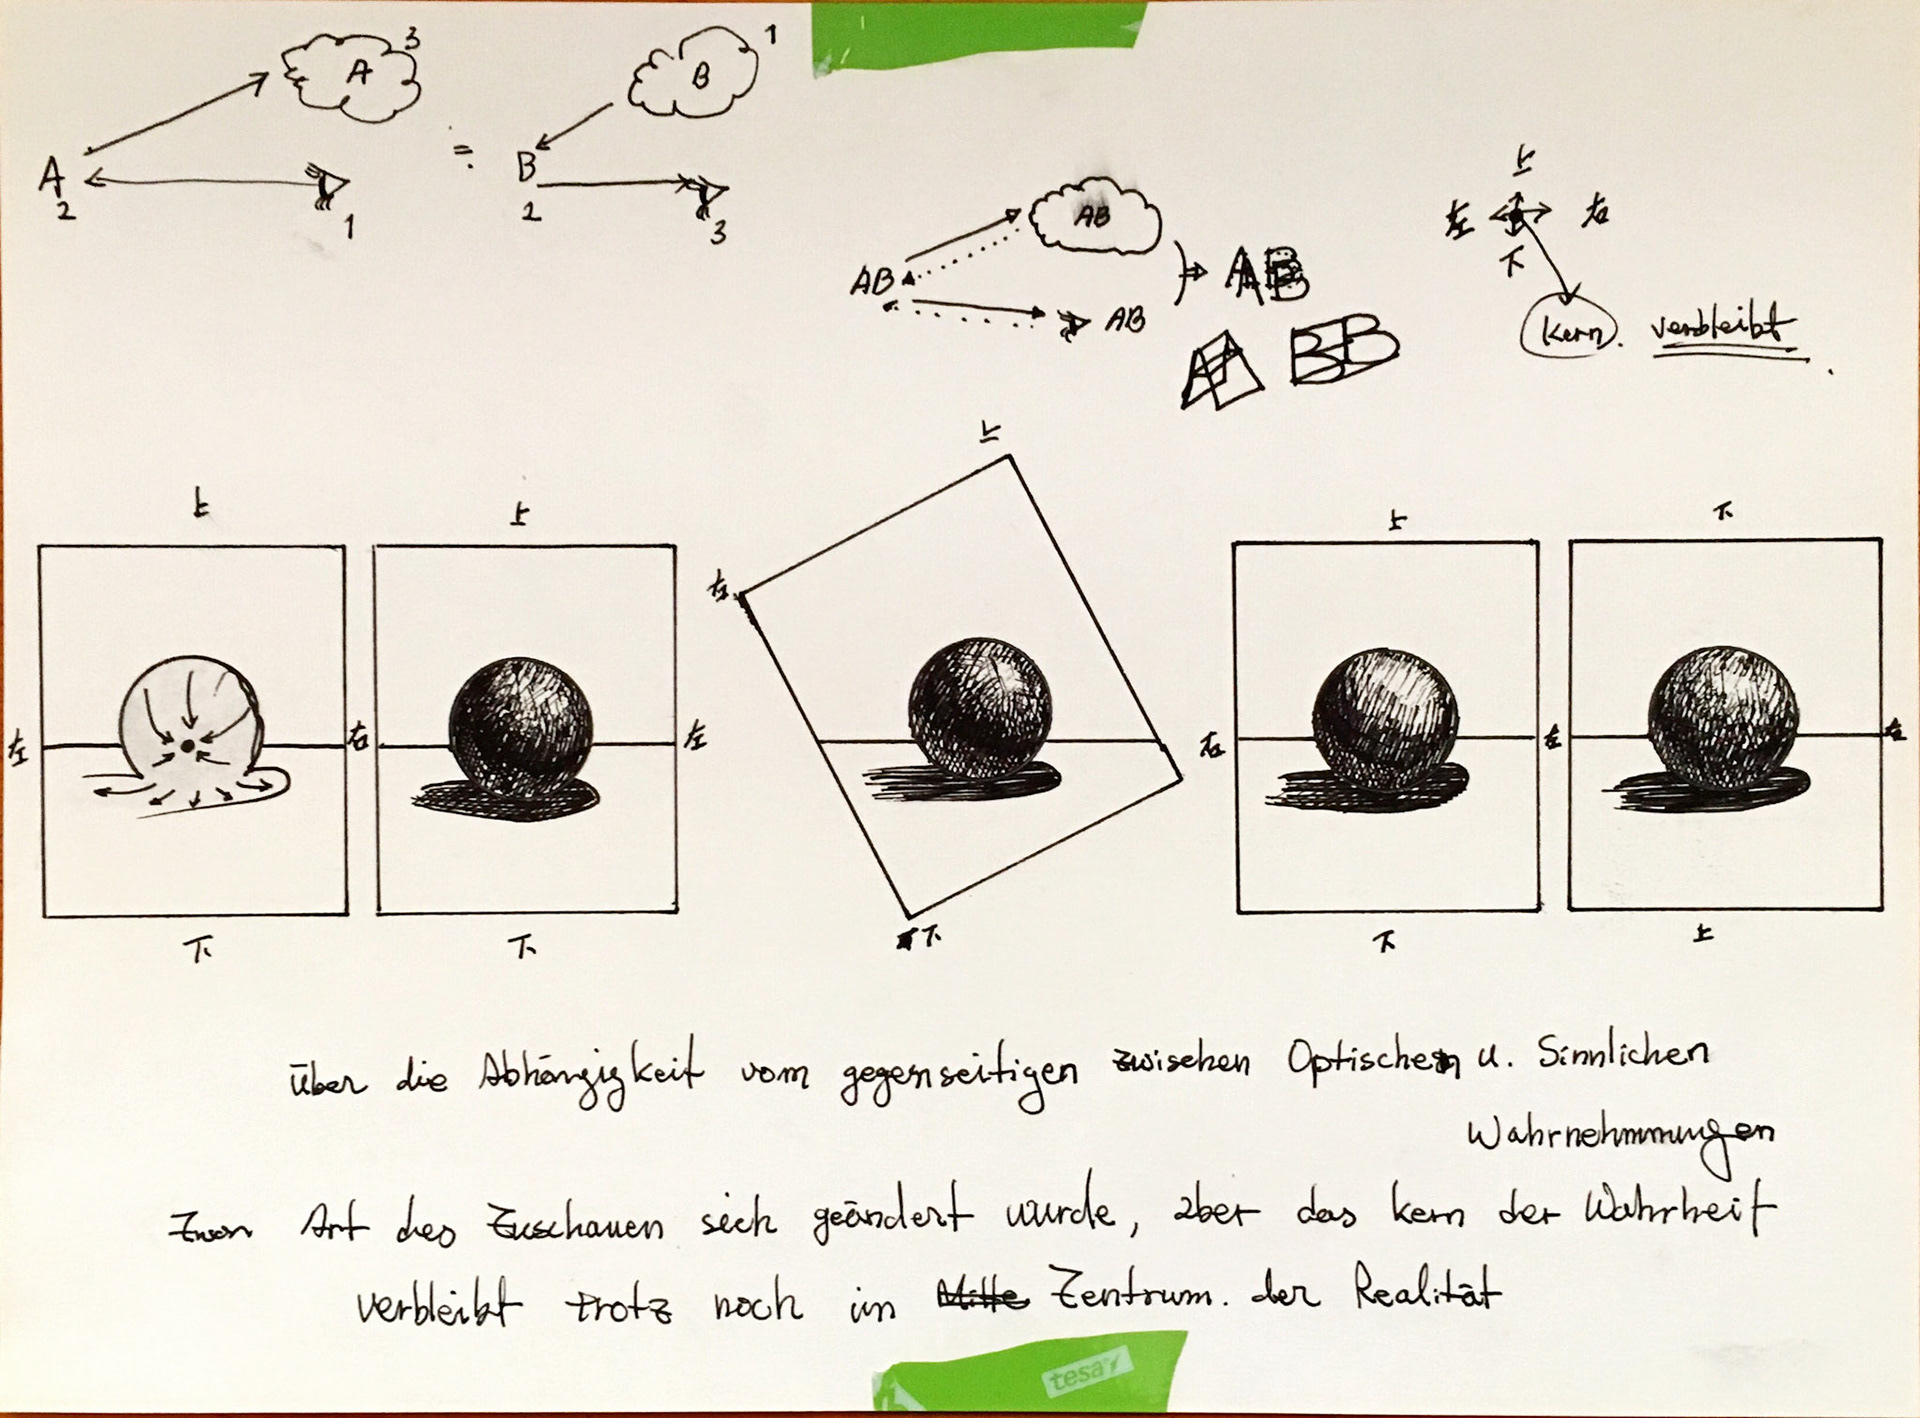 A 3
B 1
A 2
1
=
B 2
3
AB
AB
AB
AB
A B B
上
左 右
下
Kern. verbleibt
上 上 上 上 下
左 右 左 左 右 左 左
下 下 下 下 上
über die Abhängigkeit vom gegenseitigen zwischen Optischen u. Sinnlichen
Wahrnehmmungen
Art des Zuschauen sich geändert wurde, aber das kern der Wahrheit
verbleibt trotz noch im Mitte Zentrum. der Realität
tesa